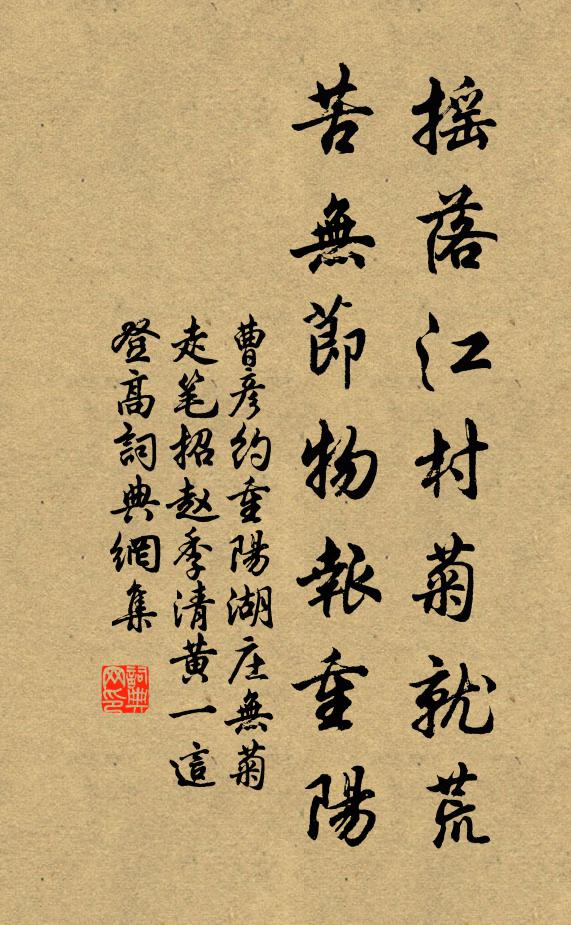 摇落江村菊就荒
苦無節物報重陽
曹彦约重陽湖庄無菊
走笔招赵季清黄一這
登高詞典網集
詞典网印